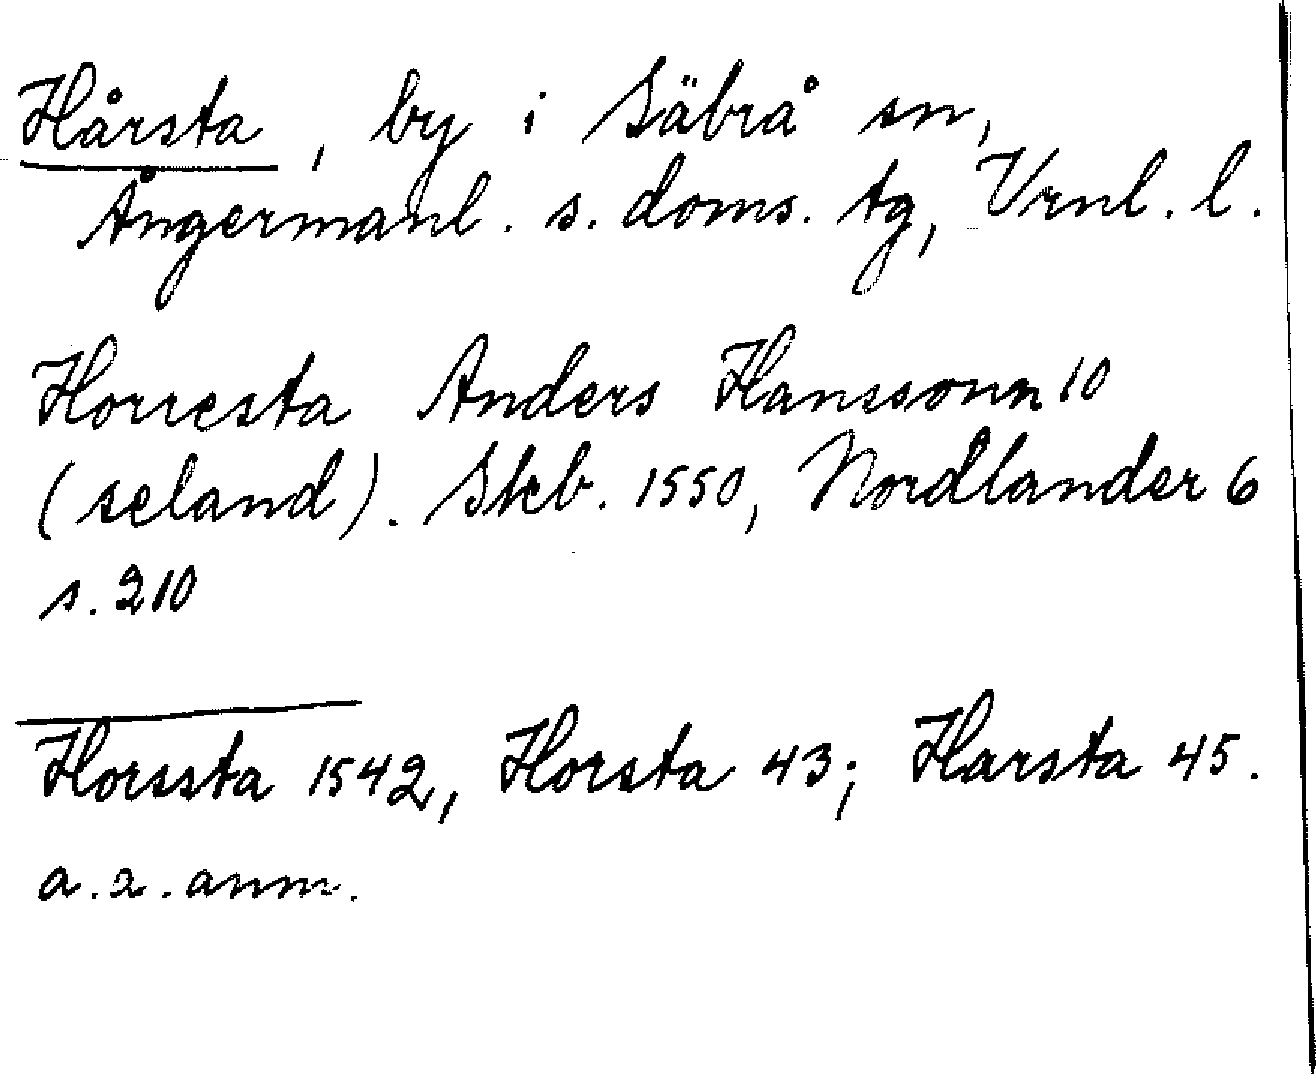 Hårsta, by i Säbrå sn,
Ångermanl. s. doms. tg, Vrnl. l.
Horresta Anders Hanssonn 10
(seland). Skb. 1550, Nordlander 6
s. 210
Horssta 1542, Horsta 43; Harsta 45.
a.a. anm.